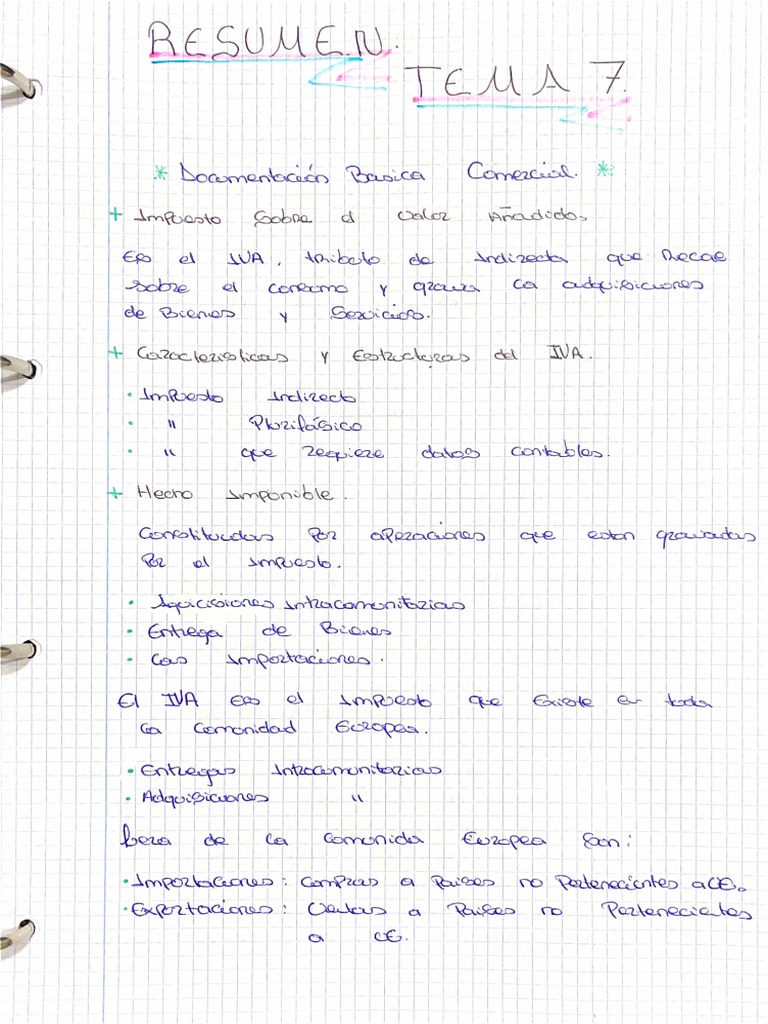 RESUMEN.
TEMA 7.
* Documentación Basica Comercial. *
+ Impuesto Sobre el Valor Añadido.
Es el IVA, tributo de Indirecta que Recae
sobre el consumo y grava la adquisiciones
de Bienes y Servicios.
+ Caracteristicas y Estructuras del IVA.
· Impuesto Indirecto
· " Plurifásico
· " que requiere datos contables.
+ Hecho Imponible.
Constituidas por operaciones que estan gravadas
por el impuesto.
· Aquicisiones Intracomunitarias
· Entrega de Bienes
· Las Importaciones.
El IVA es el impuesto que existe en toda
la comunidad Europea.
· Entregas Intracomunitarias
· Adquisiciones "
fuera de la comunida Europea son:
· Importaciones: compras a Paises no Pertenecientes a CE.
· Exportaciones: Ventas a Paises no Pertenecientes
a CE.